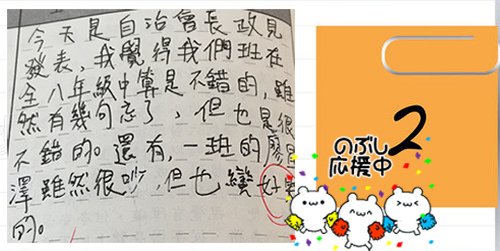 今天是自治會長政見
發表，我覺得我們班在
全八年級中算是不錯的，雖
然有幾句忘了，但也是很
不錯的。還有，一班的廖
澤雖然很吵，但也蠻好
的。
2
のぶし
応援中